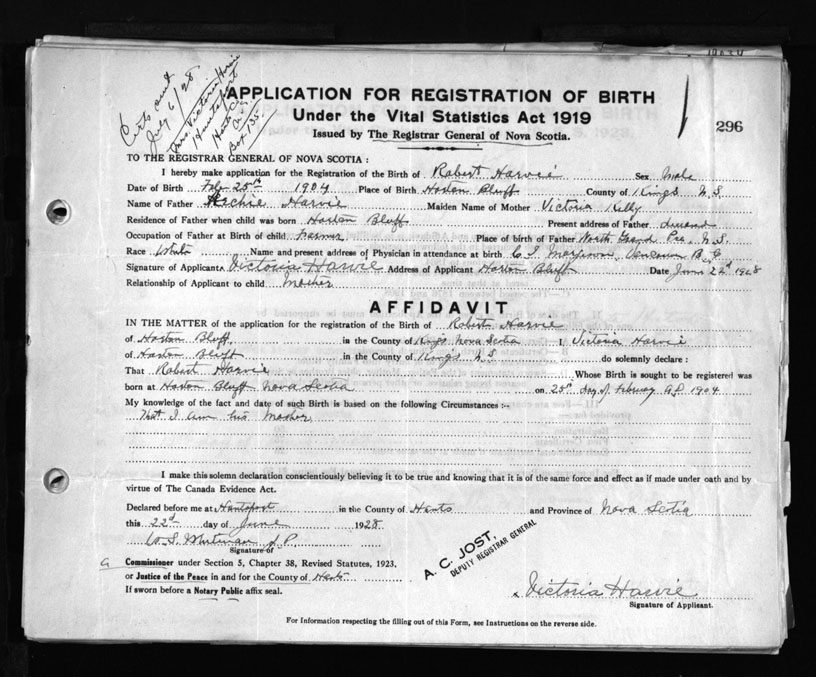 Certs sent
July 6/28
Mrs. Victoria Harvie
Hantsport
Hants Co.
N.S.
Box 135.
APPLICATION FOR REGISTRATION OF BIRTH
Under the Vital Statistics Act 1919
Issued by The Registrar General of Nova Scotia.
296
TO THE REGISTRAR GENERAL OF NOVA SCOTIA :
I hereby make application for the Registration of the Birth of Robert Harvie Sex Male
Date of Birth Feby 25th 1904 Place of Birth Horton Bluff County of Kings N.S.
Name of Father Harvie Maiden Name of Mother Victoria Kelly
Residence of Father when child was born Horton Bluff Present address of Father deceased
Occupation of Father at Birth of child Farmer Place of birth of Father North Grand Pre, N.S.
Race White Name and present address of Physician in attendance at birth C. S. B.C.
Signature of Applicant Victoria Harvie Address of Applicant Horton Bluff Date June 22d 1928
Relationship of Applicant to child Mother
AFFIDAVIT
IN THE MATTER of the application for the registration of the Birth of Robert Harvie
of Horton Bluff, in the County of Kings Nova Scotia I, Victoria Harvie
of Horton Bluff in the County of Kings N.S do solemnly declare :
That Robert Harvie Whose Birth is sought to be registered was
born at Horton Bluff Nova Scotia on 25th day of February A.D. 1904
My knowledge of the fact and date of such Birth is based on the following Circumstances :--
That I am his Mother
I make this solemn declaration conscientiously believing it to be true and knowing that it is of the same force and effect as if made under oath and by
virtue of The Canada Evidence Act.
Declared before me at Hantsport in the County of Hants and Province of Nova Scotia
this 22d day of June 1928
W. S. Whitman J.P.
Signature of
A. C. JOST.
DEPUTY REGISTRAR GENERAL
a Commissioner under Section 5, Chapter 38, Revised Statutes, 1923,
or Justice of the Peace in and for the County of Hants
If sworn before a Notary Public affix seal.
Victoria Harvie
Signature of Applicant.
For Information respecting the filling out of this Form, see Instructions on the reverse side.